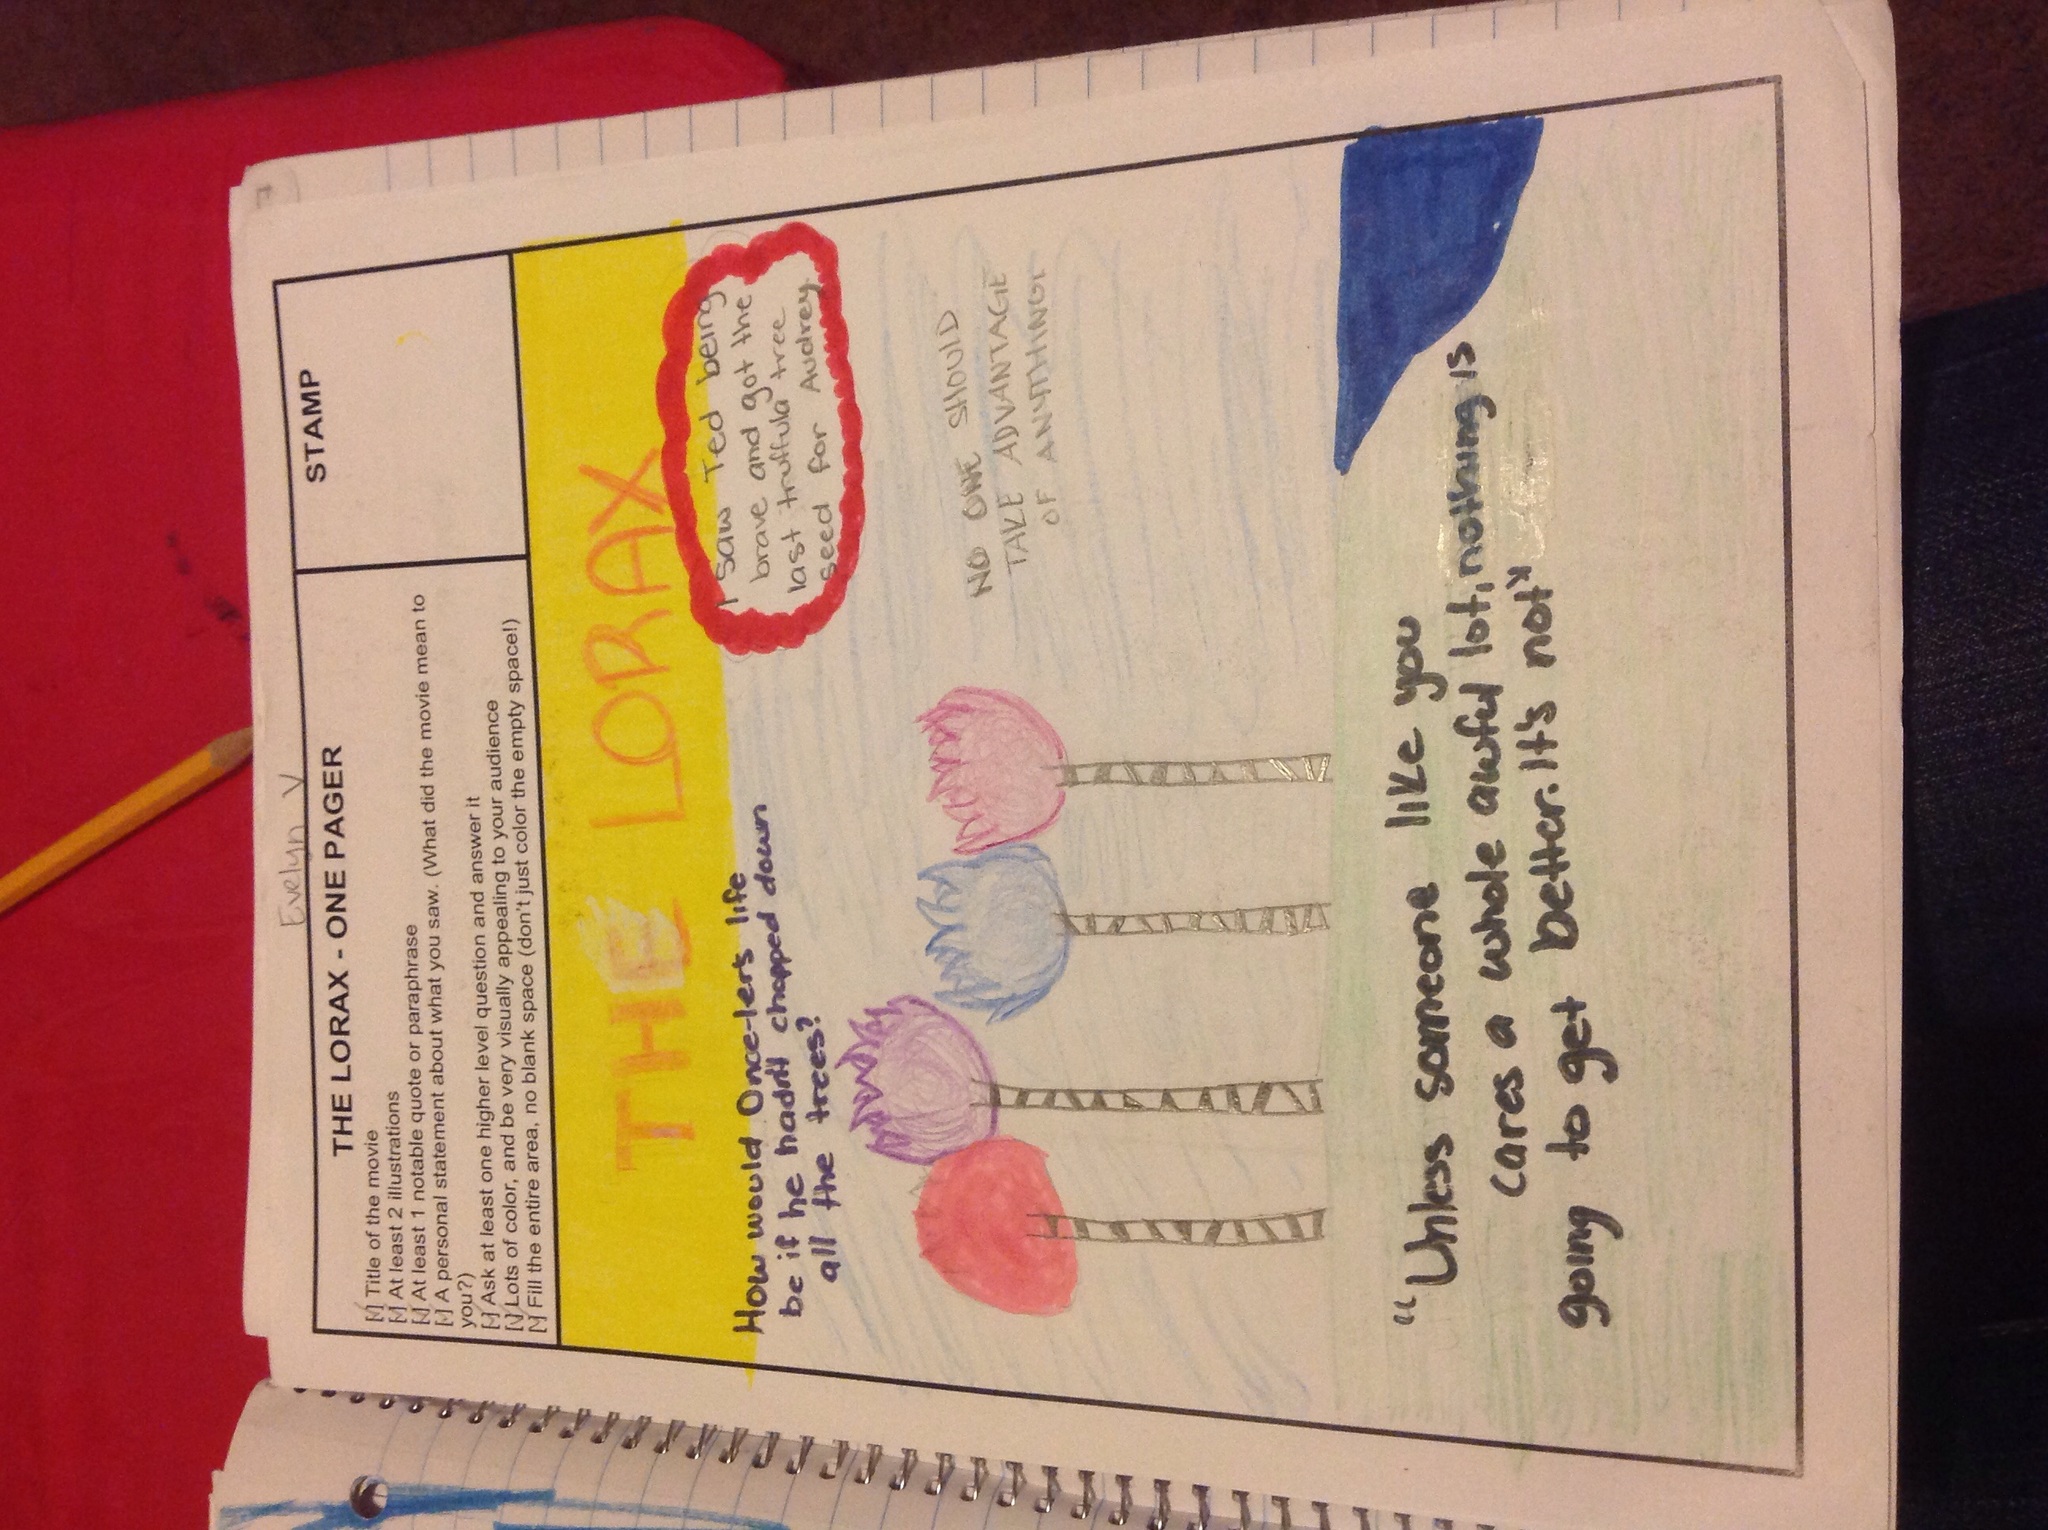 Evelyn V
THE LORAX - ONE PAGER
STAMP
[✓] Title of the movie
[✓] At least 2 illustrations
[✓] At least 1 notable quote or paraphrase
[✓] A personal statement about what you saw. (What did the movie mean to
you?)
[✓] Ask at least one higher level question and answer it
[✓] Lots of color, and be very visually appealing to your audience
[✓] Fill the entire area, no blank space (don't just color the empty space!)
THE LORAX
How would Once-lers life
be if he hadn't chopped down
all the trees?
I saw Ted being
brave and got the
last truffula tree
seed for Audrey.
NO ONE SHOULD
TAKE ADVANTAGE
OF ANYTHING
"Unless someone like you
cares a whole awful lot, nothing is
going to get better. It's not"